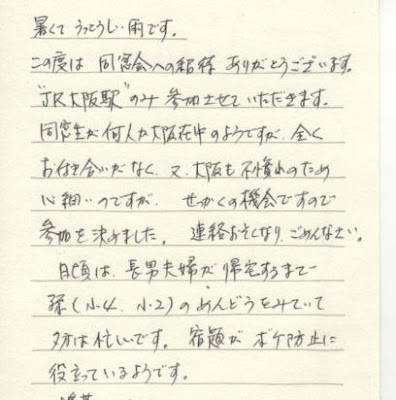 暑くてうっとうしい雨です。
この度は 同窓会への招待 ありがとうございます。
"JR大阪駅"のみ 参加させていただきます。
同窓生が何人か大阪在中のようですが、全く
お付き合いがなく、又、大阪も不慣れのため
心細いのですが、せっかくの機会ですので
参加を決めました。連絡おそくなり、ごめんなさい。
日頃は、長男夫婦が帰宅するまで
孫(小4、小2)のめんどうをみていて
夕方は忙しいです。宿題がボケ防止に
役立っているようです。